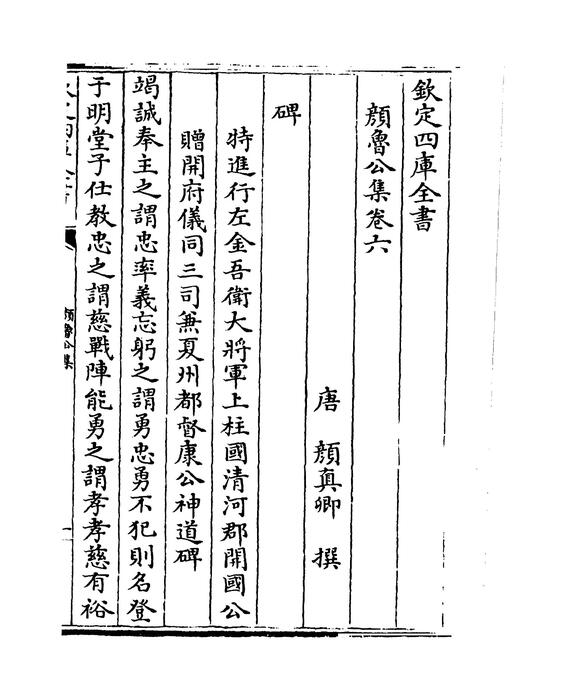 欽定四庫全書
顔魯公集卷六
唐 顔真卿 撰
碑
特進行左金吾衛大將軍上柱國清河郡開國公
贈開府儀同三司兼夏州都督康公神道碑
竭誠奉主之謂忠率義忘躬之謂勇忠勇不犯則名登
于明堂子仕教忠之謂慈戰陣能勇之謂孝孝慈有裕
顔魯公集
一